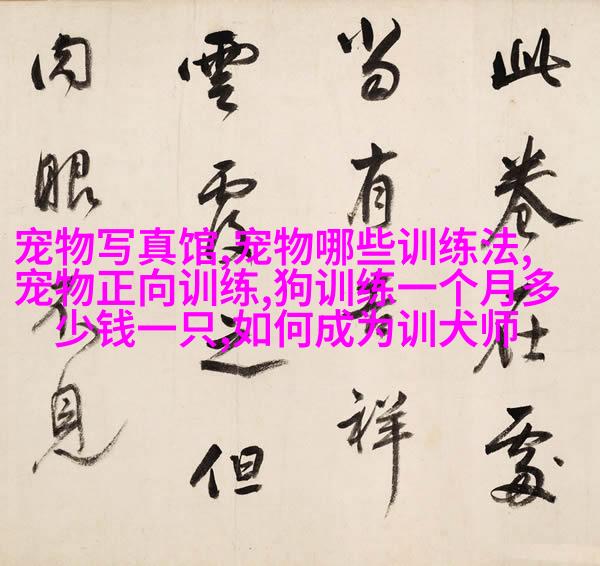 此卷在處
當有吉祥
雲覆之但
肉眼不見
宠物写真馆,宠物哪些训练法,
宠物正向训练,狗训练一个月多
少钱一只,如何成为训犬师